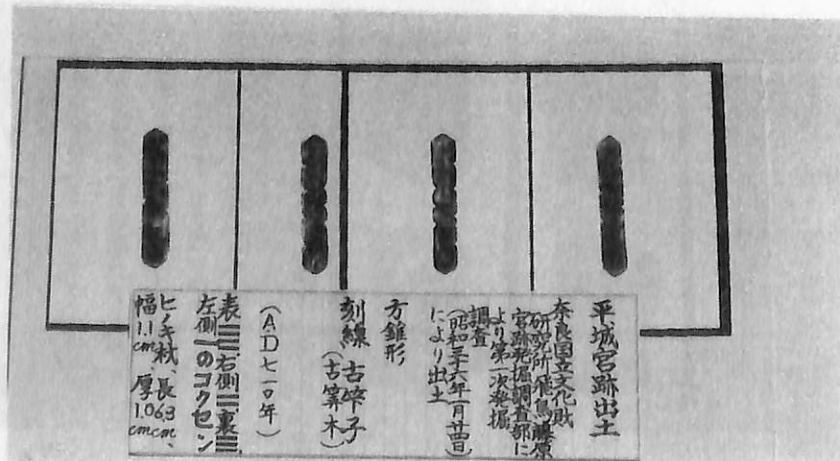 平城宮跡出土
奈良国立文化財
研究所飛鳥藤原
宮跡発掘調査部に
より第一次発掘
調査
(昭和三十六年一月廿四日)
により出土
方錐形
刻線 古筭子
(古算木)
(AD七一〇年)
表三右側三裏三
左側一のコクセン
ヒノキ材、長6.3cm、
幅1.1cm 厚1.0cm